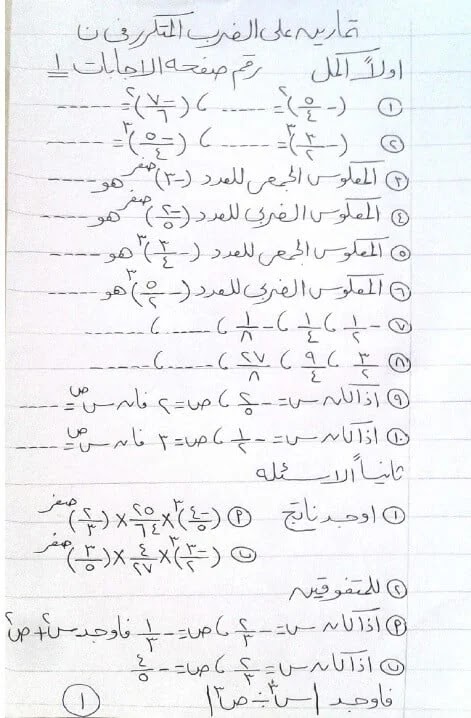 تمارين على الضرب المتكرر فى ن
اولاً اكمل رقم صفحه الاجابات ١
١ (-٥/٤)^٢ = ----- ، (-٧/٦)^٢ = -----
٢ (-٣/٢)^٣ = ----- ، (-٥/٤)^٣ = -----
٣ المعكوس الجمعى للعدد (-٣)^صفر هو -----
٤ المعكوس الضربى للعدد (-٢/٥)^صفر هو -----
٥ المعكوس الجمعى للعدد (-٣/٤)^٣ هو -----
٦ المعكوس الضربى للعدد (-٥/٢)^٣ هو -----
٧ -١/٢ ، ١/٤ ، -١/٨ ، ----- ، -----
٨ ٣/٢ ، ٩/٤ ، ٢٧/٨ ، ----- ، -----
٩ اذا كان س = -٢/٥ ، ص = ٢ فان س^ص = -----
١٠ اذا كان س = -١/٢ ، ص = ٣ فان س^ص = -----
ثانياً الاسئله
١ اوجد ناتج أ (-٤/٥)^٣ × ٢٥/٦٤ × (٢/٣)^صفر
ب (-٣/٢)^٣ × ٤/٢٧ × (٣/٥)^صفر
٢ للمتفوقين
أ اذا كان س = -٢/٣ ، ص = -١/٣ فاوجد س^٢ + ص^٢
ب اذا كان س = -٢/٣ ، ص = -٤/٥
فاوجد |س^٣ ÷ ص^٣|
١